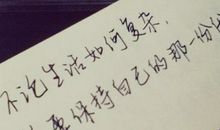 不论生活如何复杂,
要保持自己的那一份